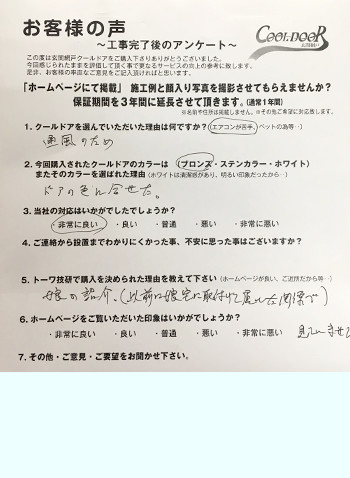 お客様の声
～工事完了後のアンケート～
COOL DOOR
この度は玄関網戸クールドアをご購入下さりありがとうございました。
今回感じられたままを評価して頂く事で更なるサービスの向上の参考に致します。
是非、お客様の率直なご意見をご記入頂ければと思います。
「ホームページにて掲載」 施工例と顔入り写真を撮影させてもらえませんか?
保証期間を3年間に延長させて頂きます。(通常1年間)
※名前や住所は掲載しません。※その他ご希望に対応致します。
1. クールドアを選んでいただいた理由は何ですか? (エアコンが苦手、ペットの為等…)
通風のため
2. 今回購入されたクールドアのカラーは (ブロンズ・ステンカラー・ホワイト)
またそのカラーを選ばれた理由 (ホワイトは清潔感があり、明るい印象だったから…)
ドアの色に合せた。
3. 当社の対応はいかがでしたでしょうか?
・非常に良い ・良い ・普通 ・悪い ・非常に悪い
4. ご連絡から設置までわかりにくかった事、不安に思った事はございますか?
5. トーワ技研で購入を決められた理由を教えて下さい (ホームページが良い、ご近所だから等…)
娘の紹介。(以前は娘宅に取付けて戴いた関係で)
6. ホームページをご覧いただいた印象はいかがでしょうか?
・非常に良い ・良い ・普通 ・悪い ・非常に悪い
7. その他・ご意見・ご要望をお聞かせ下さい。